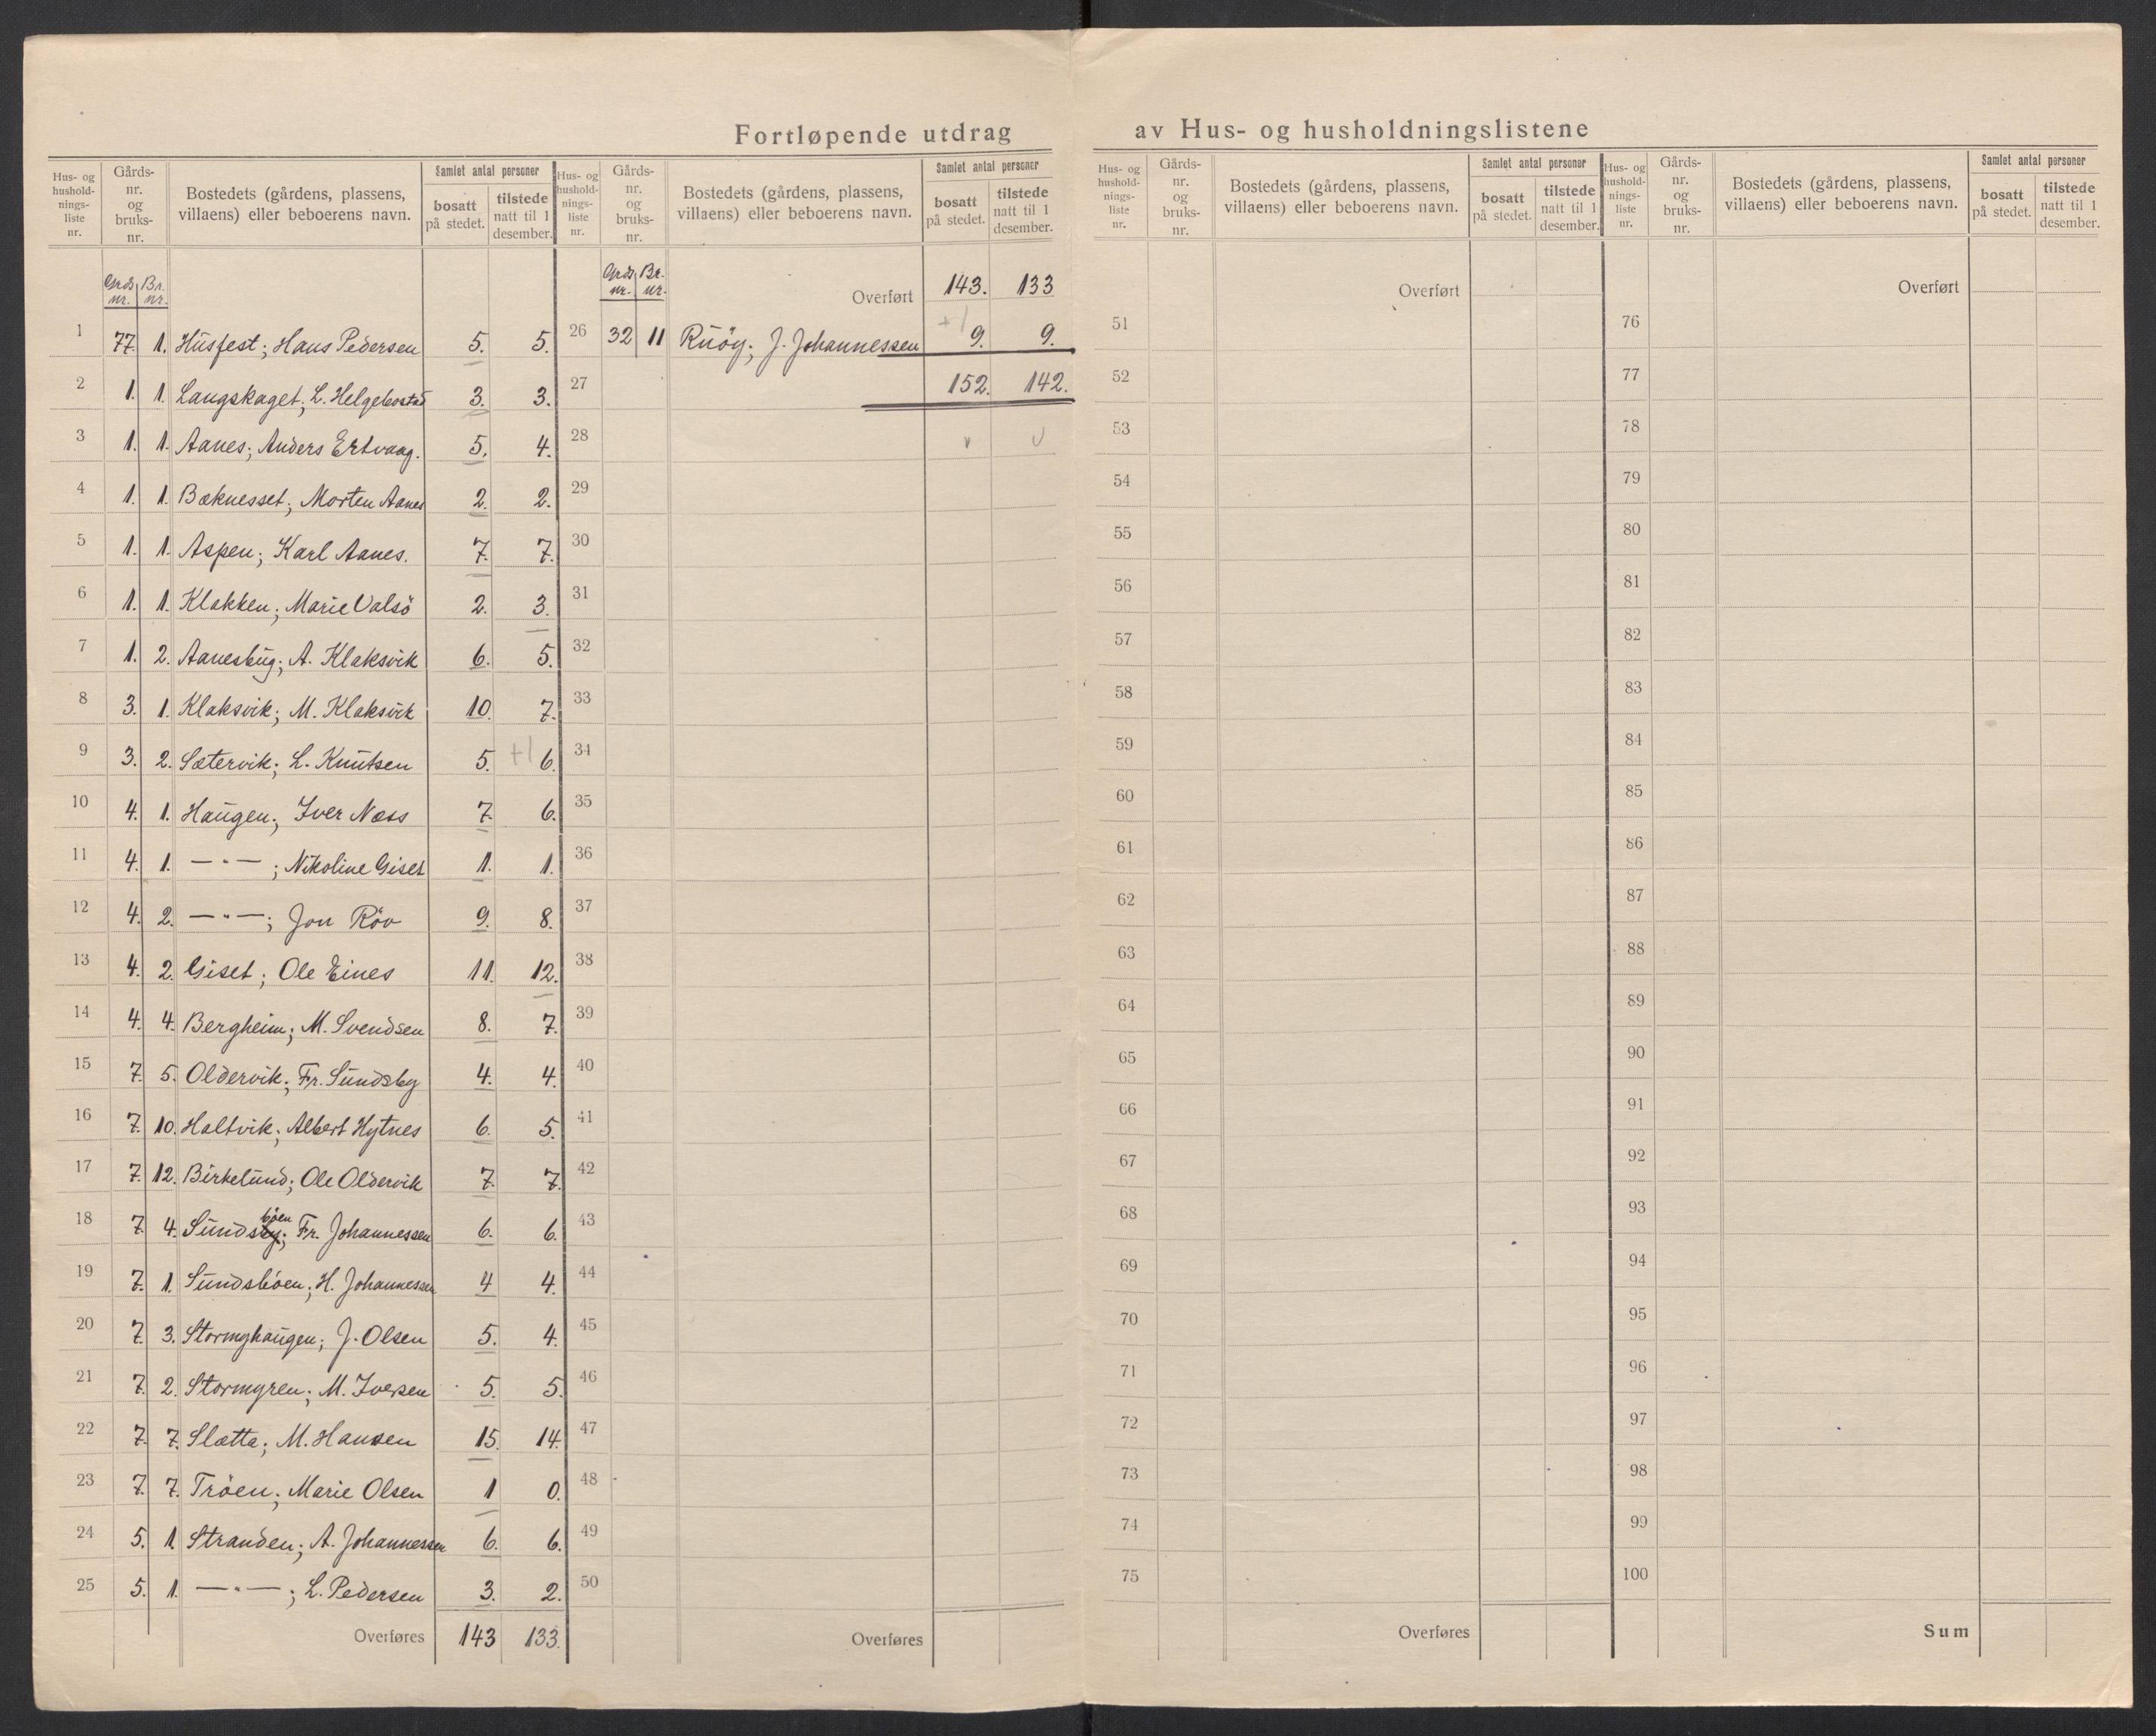 Fortløpende utdrag av Hus- og husholdningslistene
Hus- og hushold- nings- liste nr. | Gårds- nr. og bruks- nr. | Bostedets (gårdens, plassens, villaens) eller beboerens navn. | Samlet antal personer bosatt på stedet. | tilstede natt til 1 desember.
Grds nr. | Br. nr.
1 77. 1. Husfest; Hans Pedersen 5. 5.
2 1. 1. Langskaget; L. Helgebostad 3. 3.
3 1. 1. Aanes; Anders Ertvaag. 5. 4.
4 1. 1. Bæknesset; Morten Aanes 2. 2.
5 1. 1. Aspen; Karl Aanes. 7. 7.
6 1. 1. Klakken; Marie Valsö 2. 3.
7 1. 2. Aanesbug; A. Klaksvik 6. 5.
8 3. 1. Klaksvik; M. Klaksvik 10. 7.
9 3. 2. Sætervik; L. Knutsen 5. +1 6.
10 4. 1. Haugen; Iver Næss 7. 6.
11 4. 1. —"—; Nikoline Giset 1. 1.
12 4. 2. —"—; Jon Röv 9. 8.
13 4. 2. Giset; Ole Eines 11. 12.
14 4. 4. Bergheim; M. Svendsen 8. 7.
15 7. 5. Oldervik; Fr. Sundsby 4. 4.
16 7. 10. Haltvik; Albert Hytnes 6. 5.
17 7. 12. Birkelund; Ole Oldervik 7. 7.
18 7. 4. Sundsböen; Fr. Johannessen 6. 6.
19 7. 1. Sundsböen; H. Johannessen 4 4.
20 7. 3. Stormyhaugen; J. Olsen 5. 4.
21 7. 2. Stormyren; M. Iversen 5. 5.
22 7. 7. Slætta; M. Hansen 15. 14.
23 7. 7. Tröen; Marie Olsen 1 0.
24 5. 1. Stranden; A. Johannessen 6. 6.
25 5. 1. —"—; L. Pedersen 3. 2.
Overføres 143 133.
Hus- og hushold- nings- liste nr. | Gårds- nr. og bruks- nr. | Bostedets (gårdens, plassens, villaens) eller beboerens navn. | Samlet antal personer bosatt på stedet. | tilstede natt til 1 desember.
Grds nr. | Br. nr.
Overført 143. 133
26 32 11 Ruöy; J. Johannessen +1 9. 9.
27 152. 142.
28
29
30
31
32
33
34
35
36
37
38
39
40
41
42
43
44
45
46
47
48
49
50
Overføres
Hus- og hushold- nings- liste nr. | Gårds- nr. og bruks- nr. | Bostedets (gårdens, plassens, villaens) eller beboerens navn. | Samlet antal personer bosatt på stedet. | tilstede natt til 1 desember.
Overført
51
52
53
54
55
56
57
58
59
60
61
62
63
64
65
66
67
68
69
70
71
72
73
74
75
Overføres
Hus- og hushold- nings- liste nr. | Gårds- nr. og bruks- nr. | Bostedets (gårdens, plassens, villaens) eller beboerens navn. | Samlet antal personer bosatt på stedet. | tilstede natt til 1 desember.
Overført
76
77
78
79
80
81
82
83
84
85
86
87
88
89
90
91
92
93
94
95
96
97
98
99
100
Sum